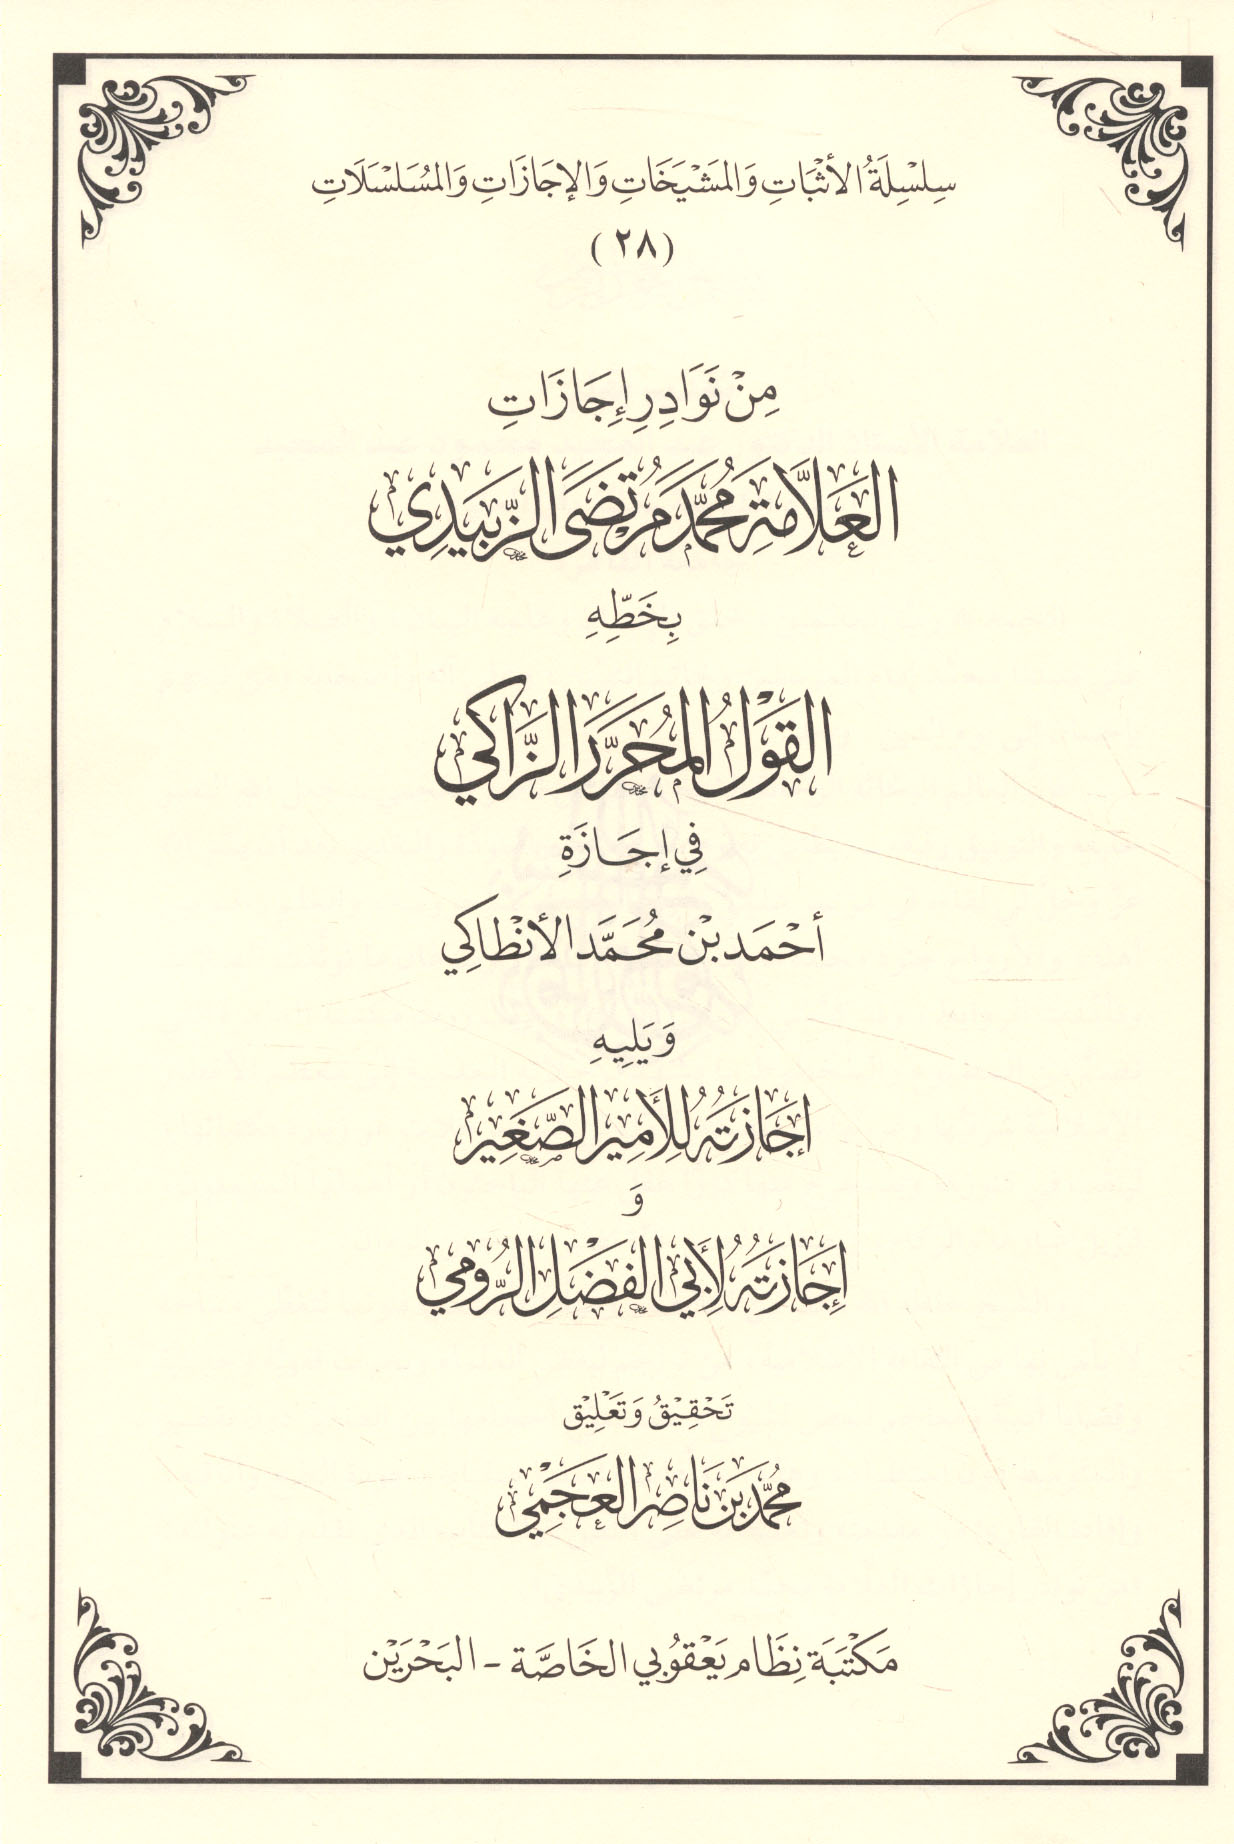 سِلْسِلَةُ الأَثْبَاتِ وَالمَشْيَخَاتِ وَالإجَازَاتِ وَالمُسَلْسَلَاتِ
(٢٨)
مِنْ نَوَادِرِ إِجَازَاتِ
العَلَّامَةِ مُحَمَّد مُرْتَضَى الزَّبِيدِي
بِخَطِّهِ
القَوْلُ المُحَرَّرَ الزَّاكِي
فِي إجَازَةِ
أحْمَد بْن مُحَمَّد الأنْطَاكِي
وَيَلِيهِ
إجَازَتُهُ لِلأَمِيرِ الصَّغِيرِ
وَ
إِجَازَتُهُ لِأَبِي الفَضْلِ الرُّومِي
تَحْقِيْقُ وَتَعْلِيْق
مُحَمَّد بْن نَاصِر العَجَمِي
مَكْتَبَة نِظَام يَعْقُوبي الخَاصَّة - البَحْرَيْن